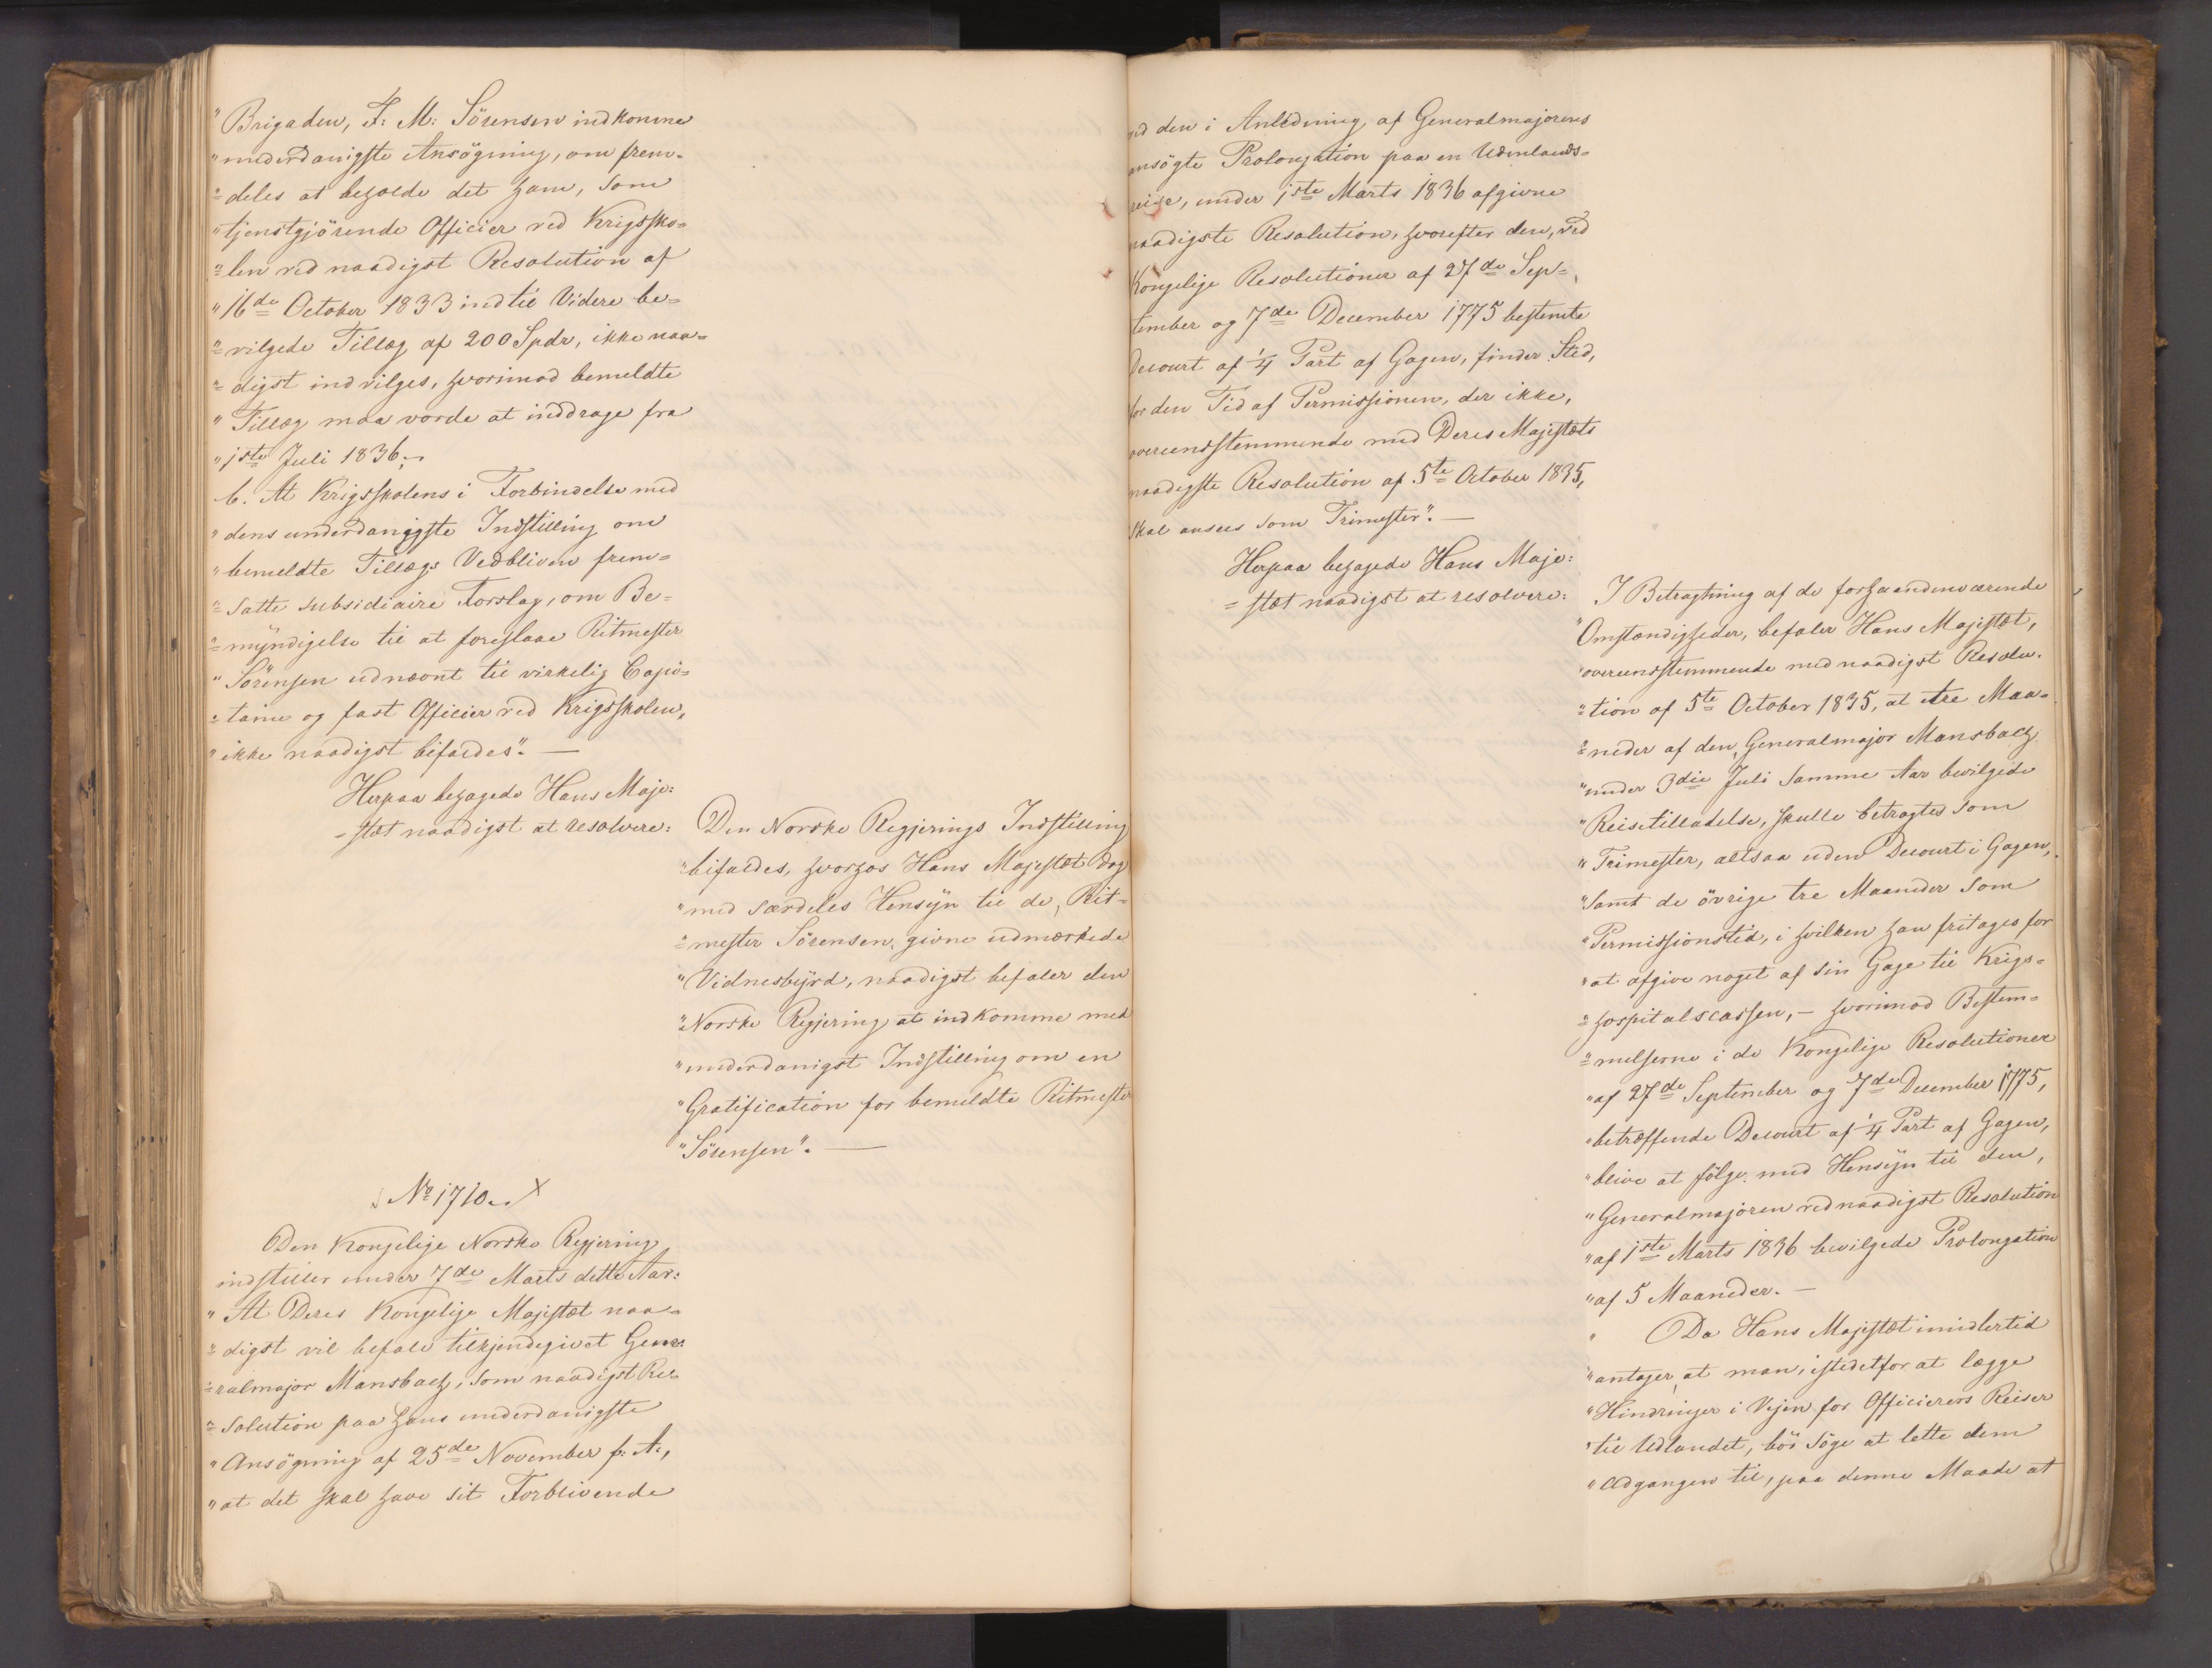 "Brigaden, F: M: Sörensen indkomne
"underdanigste Ansögning, om frem-
"=deles at beholde det ham, som
"tjenstgjörende Officier ved Krigssko=
"=len ved naadigst Resolution af
"16de October 1833 indtil Videre be=
"=vilgede Tillæg af 200 Spdr, ikke naa=
"=digst indvilges, hvorimod bemeldte
"Tillæg maa vorde at inddrage fra
"1ste Juli 1836;
b. At Krigsskolens i Forbindelse med
"dens underdanigste Indstilling om
"bemeldte Tillægs Vedbliven frem=
"=satte subsidiaire Forslag, om Be=
"=myndigelse til at foreslaae Ritmester
"Sörensen udnævnt til virkelig Capi=
"=taine og fast Officier ved Krigsskolen,
"ikke naadigst bifaldes". —
Herpaa behagede Hans Maje:
=stæt naadigst at resolvere:
Den Norske Regjerings Indstilling
"bifaldes, hvorhos Hans Majestæt dog
"med særdeles Hensyn til de, Rit=
"=mester Sörensen, givne udmærkede
"Vidnesbyrd, naadigst befaler den
"Norske Regjering at indkomme med
"underdanigst Indstilling om en
"Gratification for bemeldte Ritmester
"Sörensen". —
No 1710. X
Den Kongelige Norske Regjering
indstiller under 7de Marts dette Aar:
"At Deres Kongelige Majestæt naa=
"=digst vil befale tilkjendegivet Gene:
"=ralmajor Mansbach, som naadigst Re=
"=solution paa hans underdanigste
"Ansögning af 25de November f: A:,
"at det skal have sit Forblivende
ved den i Anledning af Generalmajorens
ansögte Prolongation paa en Udenlands=
reise, under 1ste Marts 1836 afgivne
naadigste Resolution, hvorefter den, ved
Kongelige Resolutioner af 27de Sep=
tember og 7de December 1775 bestemte
Decourt af 1/4 Part af Gagen, finder Sted,
for den Tid af Permissionen, der ikke,
overeensstemmende med Deres Majestæts
naadigste Resolution af 5te October 1835,
skal ansees som Trimester". —
Herpaa behagede Hans Maje:
=stæt naadigst at resolvere:
I Betragtning af de forhaandenværende
"Omstændigheder, befaler Hans Majestæt,
"overeensstemmende med naadigst Resolu-
"=tion af 5te October 1835, at tre Maa=
"=neder af den, Generalmajor Mansbach
"under 3die Juli samme Aar bevilgede
"Reisetilladelse, skulle betragtes som
"Trimester, altsaa uden Decourt i Gagen,
"samt de övrige tre Maaneder som
"Permissionstid, i hvilken han fritages for
"at afgive noget af sin Gage til Krigs=
"=hospitalscassen, — hvorimod Bestem=
"=melserne i de Kongelige Resolutioner
"af 27de September og 7de December 1775,
"betræffende Decourt af 1/4 Part af Gagen,
"blive at fölge med Hensyn til den,
"Generalmajoren ved naadigst Resolution
"af 1ste Marts 1836 bevilgede Prolongation
"af 5 Maaneder. —
" Da Hans Majestæt imidlertid
"antager, at man, istedetfor at lægge
"Hindringer i Vejen for Officierers Reiser
"til Udlandet, bör söge at lette dem
"Adgangen til, paa denne Maade at